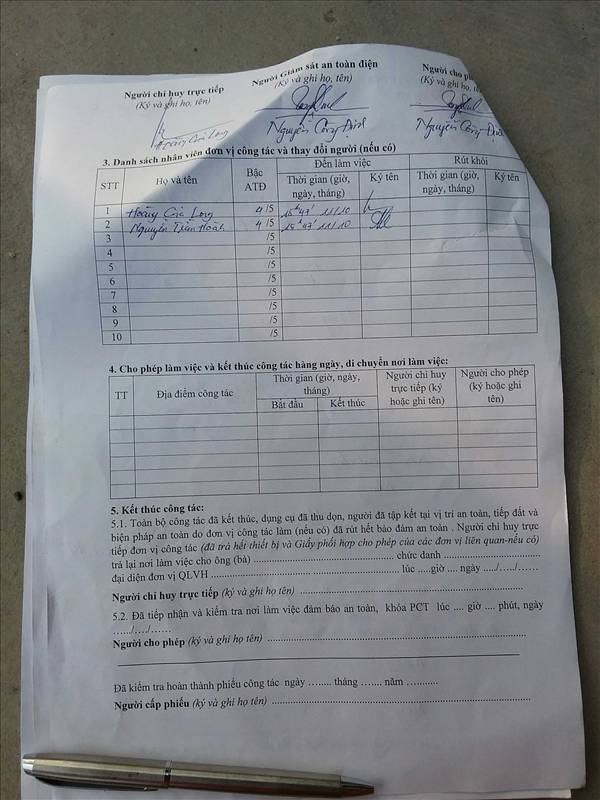 Người chỉ huy trực tiếp Người Giám sát an toàn điện Người cho
(Ký và ghi họ, tên) (Ký và ghi họ, tên) (Ký và ghi họ,
Hoàng Gia Long Nguyễn Công Định Nguyễn Công Định
3. Danh sách nhân viên đơn vị công tác và thay đổi người (nếu có)
STT Họ và tên Bậc ATĐ Đến làm việc Rút khỏi
Thời gian (giờ, ngày, tháng) Ký tên Thời gian (giờ, ngày, tháng) Ký tên
1 Hoàng Gia Long 4/5 15h47' 11/10
2 Nguyễn Trần Hoài 4/5 15h47' 11/10
3 /5
4 /5
5 /5
6 /5
7 /5
8 /5
9 /5
10 /5
4. Cho phép làm việc và kết thúc công tác hàng ngày, di chuyển nơi làm việc:
TT Địa điểm công tác Thời gian (giờ, ngày, tháng) Người chỉ huy trực tiếp (ký hoặc ghi tên) Người cho phép (ký hoặc ghi tên)
Bắt đầu Kết thúc
5. Kết thúc công tác:
5.1. Toàn bộ công tác đã kết thúc, dụng cụ đã thu dọn, người đã tập kết tại vị trí an toàn, tiếp đất và
biện pháp an toàn do đơn vị công tác làm (nếu có) đã rút hết bảo đảm an toàn . Người chỉ huy trực
tiếp đơn vị công tác (đã trả hết thiết bị và Giấy phối hợp cho phép của các đơn vị liên quan-nếu có)
trả lại nơi làm việc cho ông (bà) ........................................ chức danh ............................
đại diện đơn vị QLVH ................................................ lúc .....giờ .... ngày ...../...../......
Người chỉ huy trực tiếp (ký và ghi họ tên) ............................................................
5.2. Đã tiếp nhận và kiểm tra nơi làm việc đảm bảo an toàn, khóa PCT lúc .... giờ .... phút, ngày
....../..../......
Người cho phép (ký và ghi họ tên) ............................................................
Đã kiểm tra hoàn thành phiếu công tác ngày ........ tháng ....... năm ..........
Người cấp phiếu (ký và ghi họ tên) ............................................................